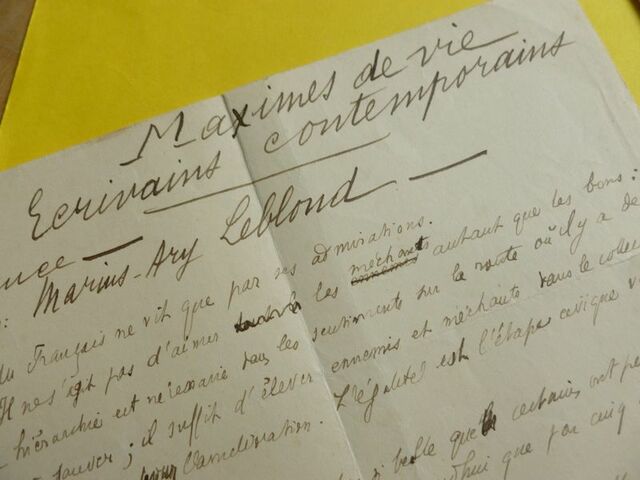 Maximes de vie
Ecrivains contemporains
Marius-Ary Leblond —
du Français ne vit que par ses admirations.
Il ne s'agit pas d'aimer les méchants autant que les bons :
hiérarchie est nécessaire dans les sentiments sur la route où il y a de
sauver ; il suffit d'élever ennemis et méchants dans le
pour l'amélioration. L'égalité est l'étape civique
belle que certains ont
que par cinq